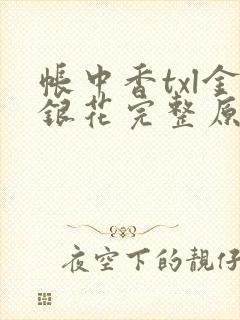 帳中香txl金
銀花完整原
夜空下的靚仔